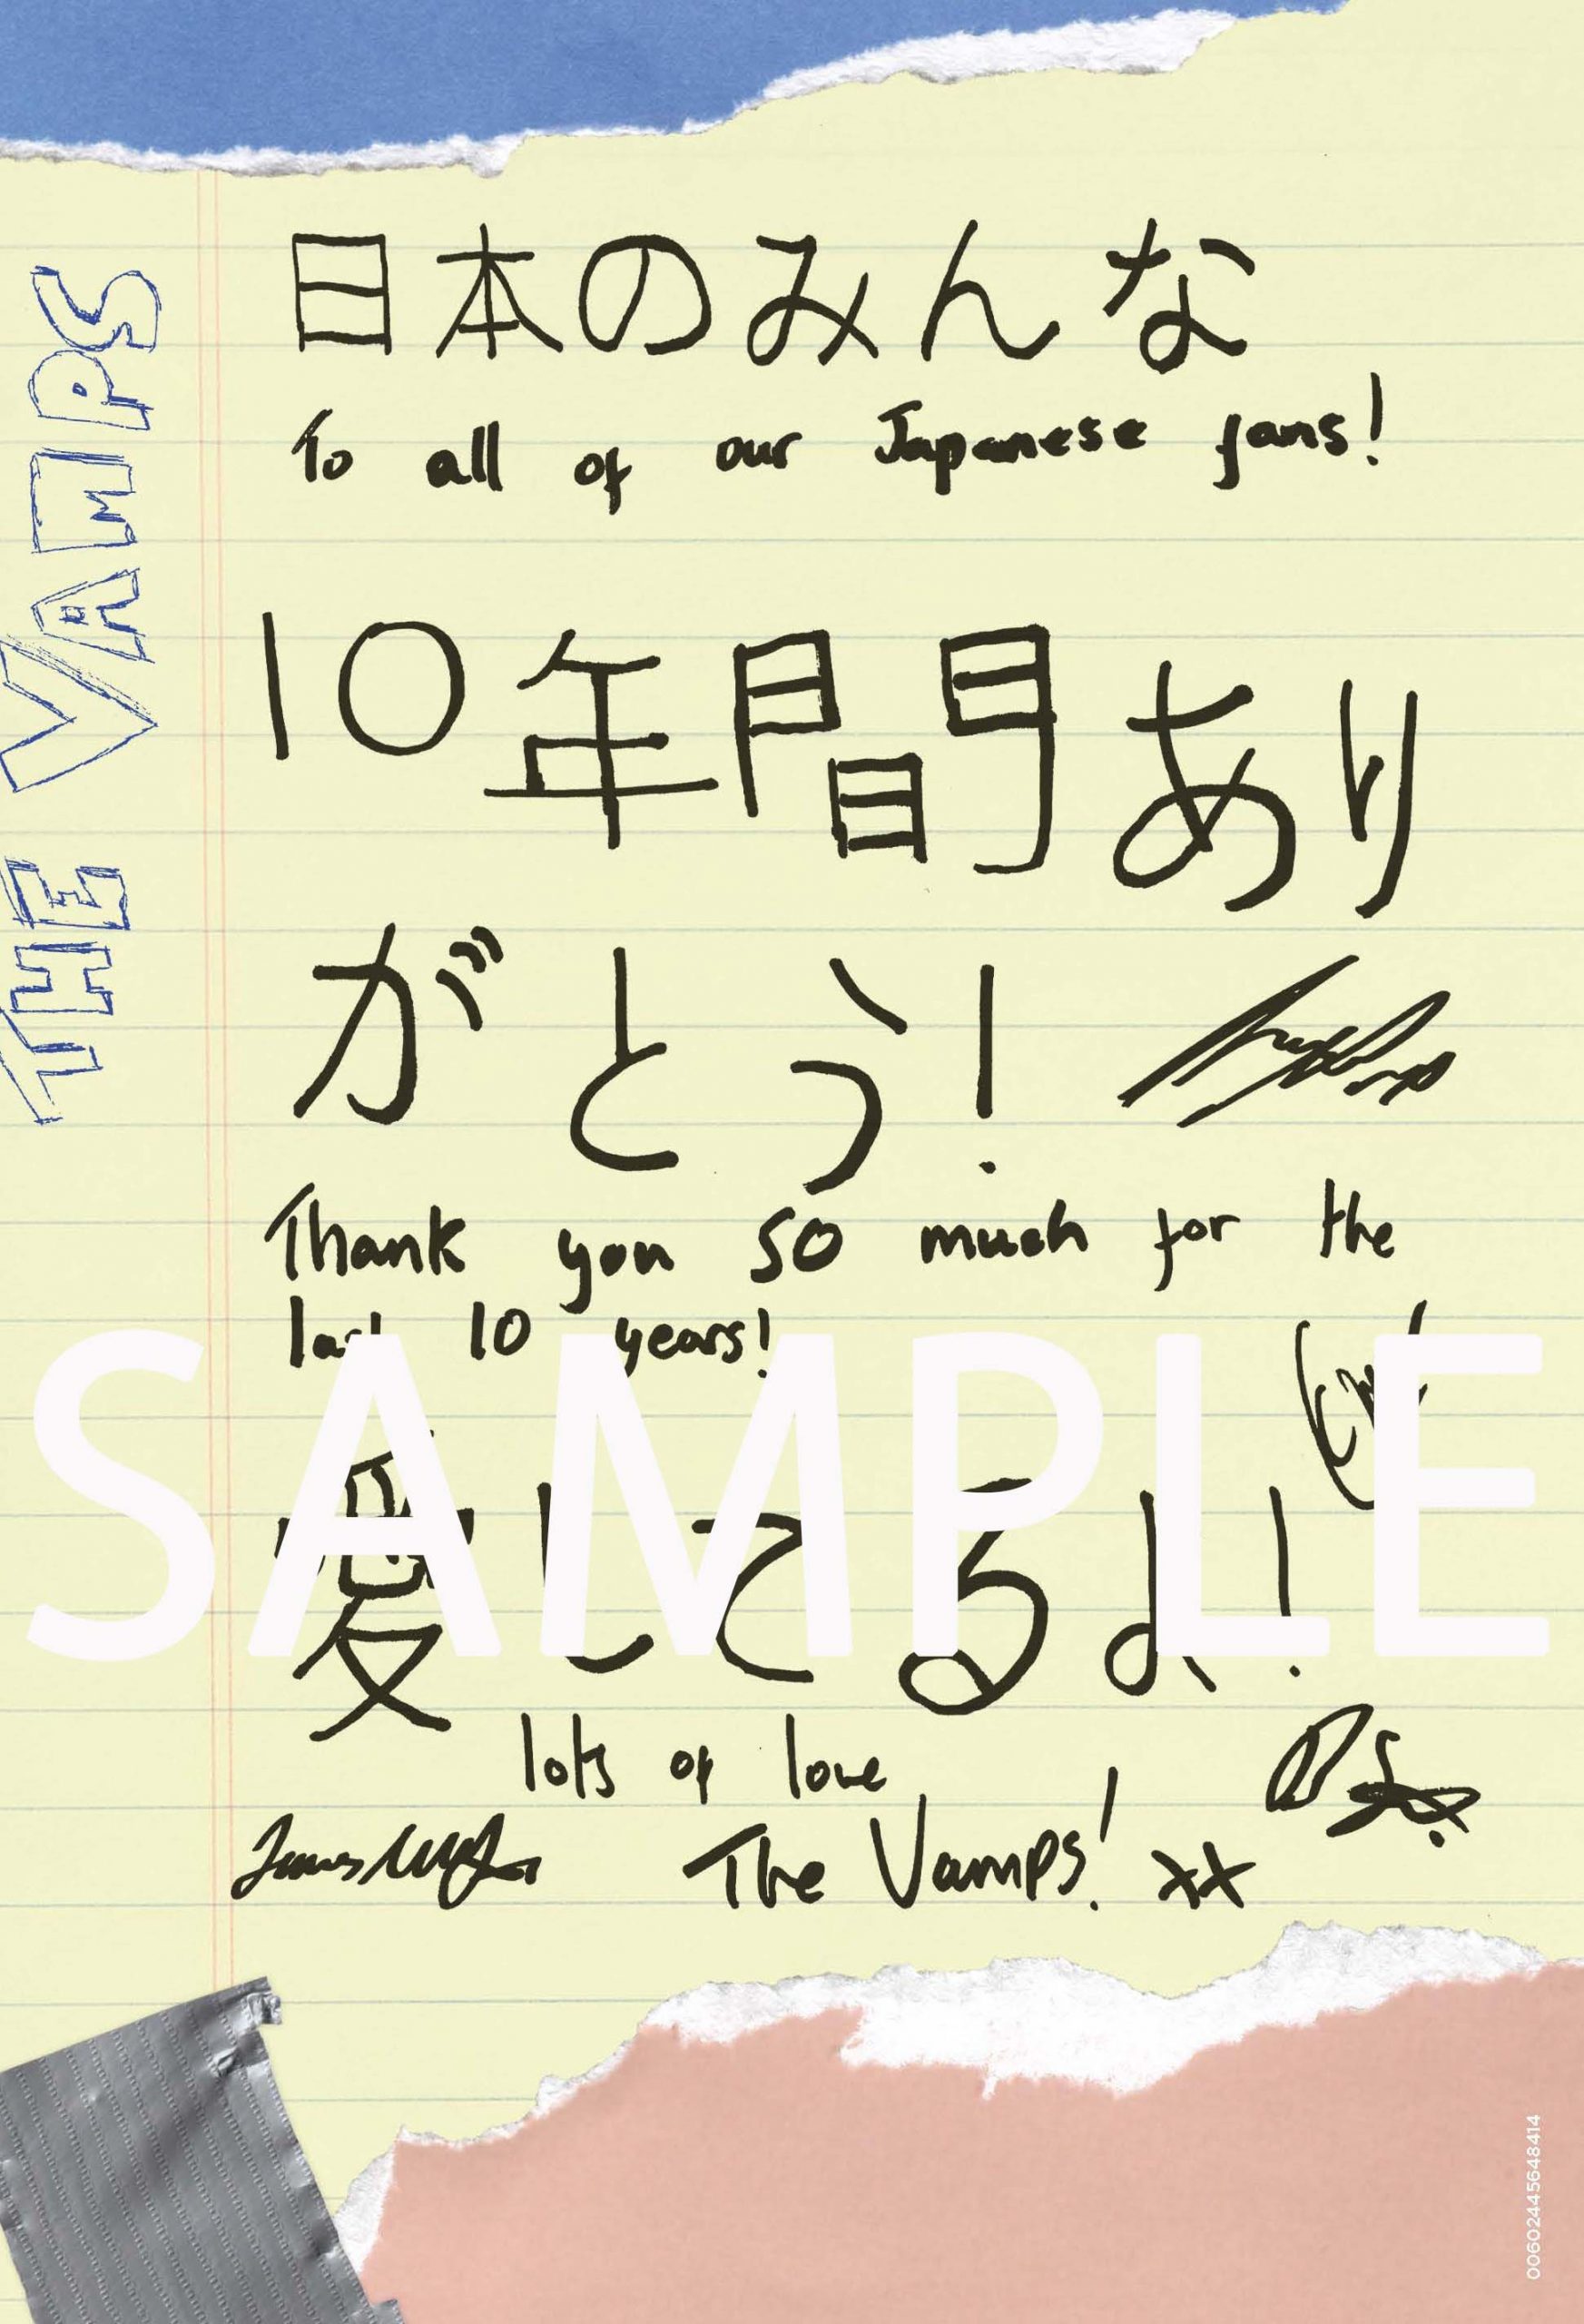 THE VAMPS
日本のみんな
To all of our Japanese fans!
10年間あり
がとう!
Thank you so much for the
last 10 years!
SAMPLE
愛してるよ!
lots of love
The Vamps! xx
00602445648414